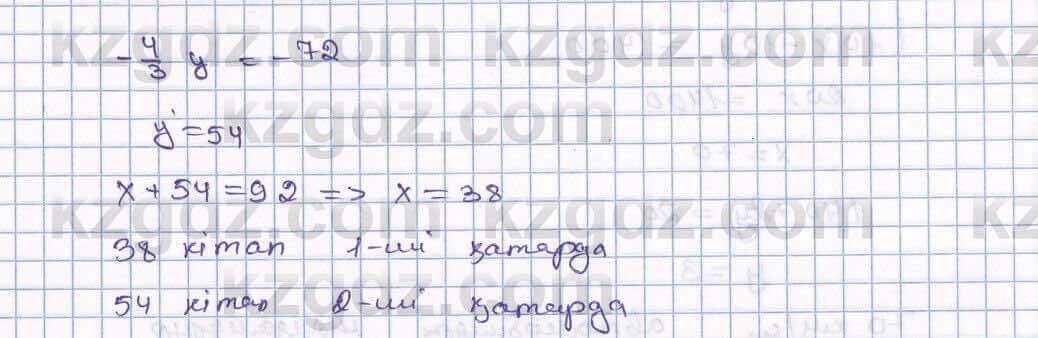 -4/3 y = -72
y = 54
x + 54 = 92 => x = 38
38 кітап 1-ші қатарда
54 кітап 2-ші қатарда
kzgdz.com kzgdz.com
kzgdz.com
kzgdz.com kzgdz.com
kzgdz.com